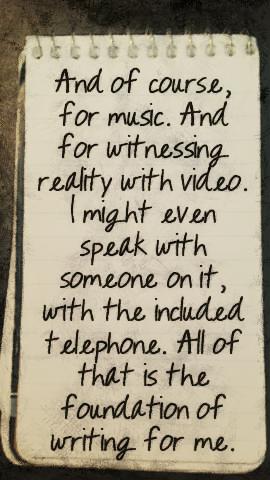 And of course,
for music. And
for witnessing
reality with video.
I might even
speak with
someone on it,
with the included
telephone. All of
that is the
foundation of
writing for me.